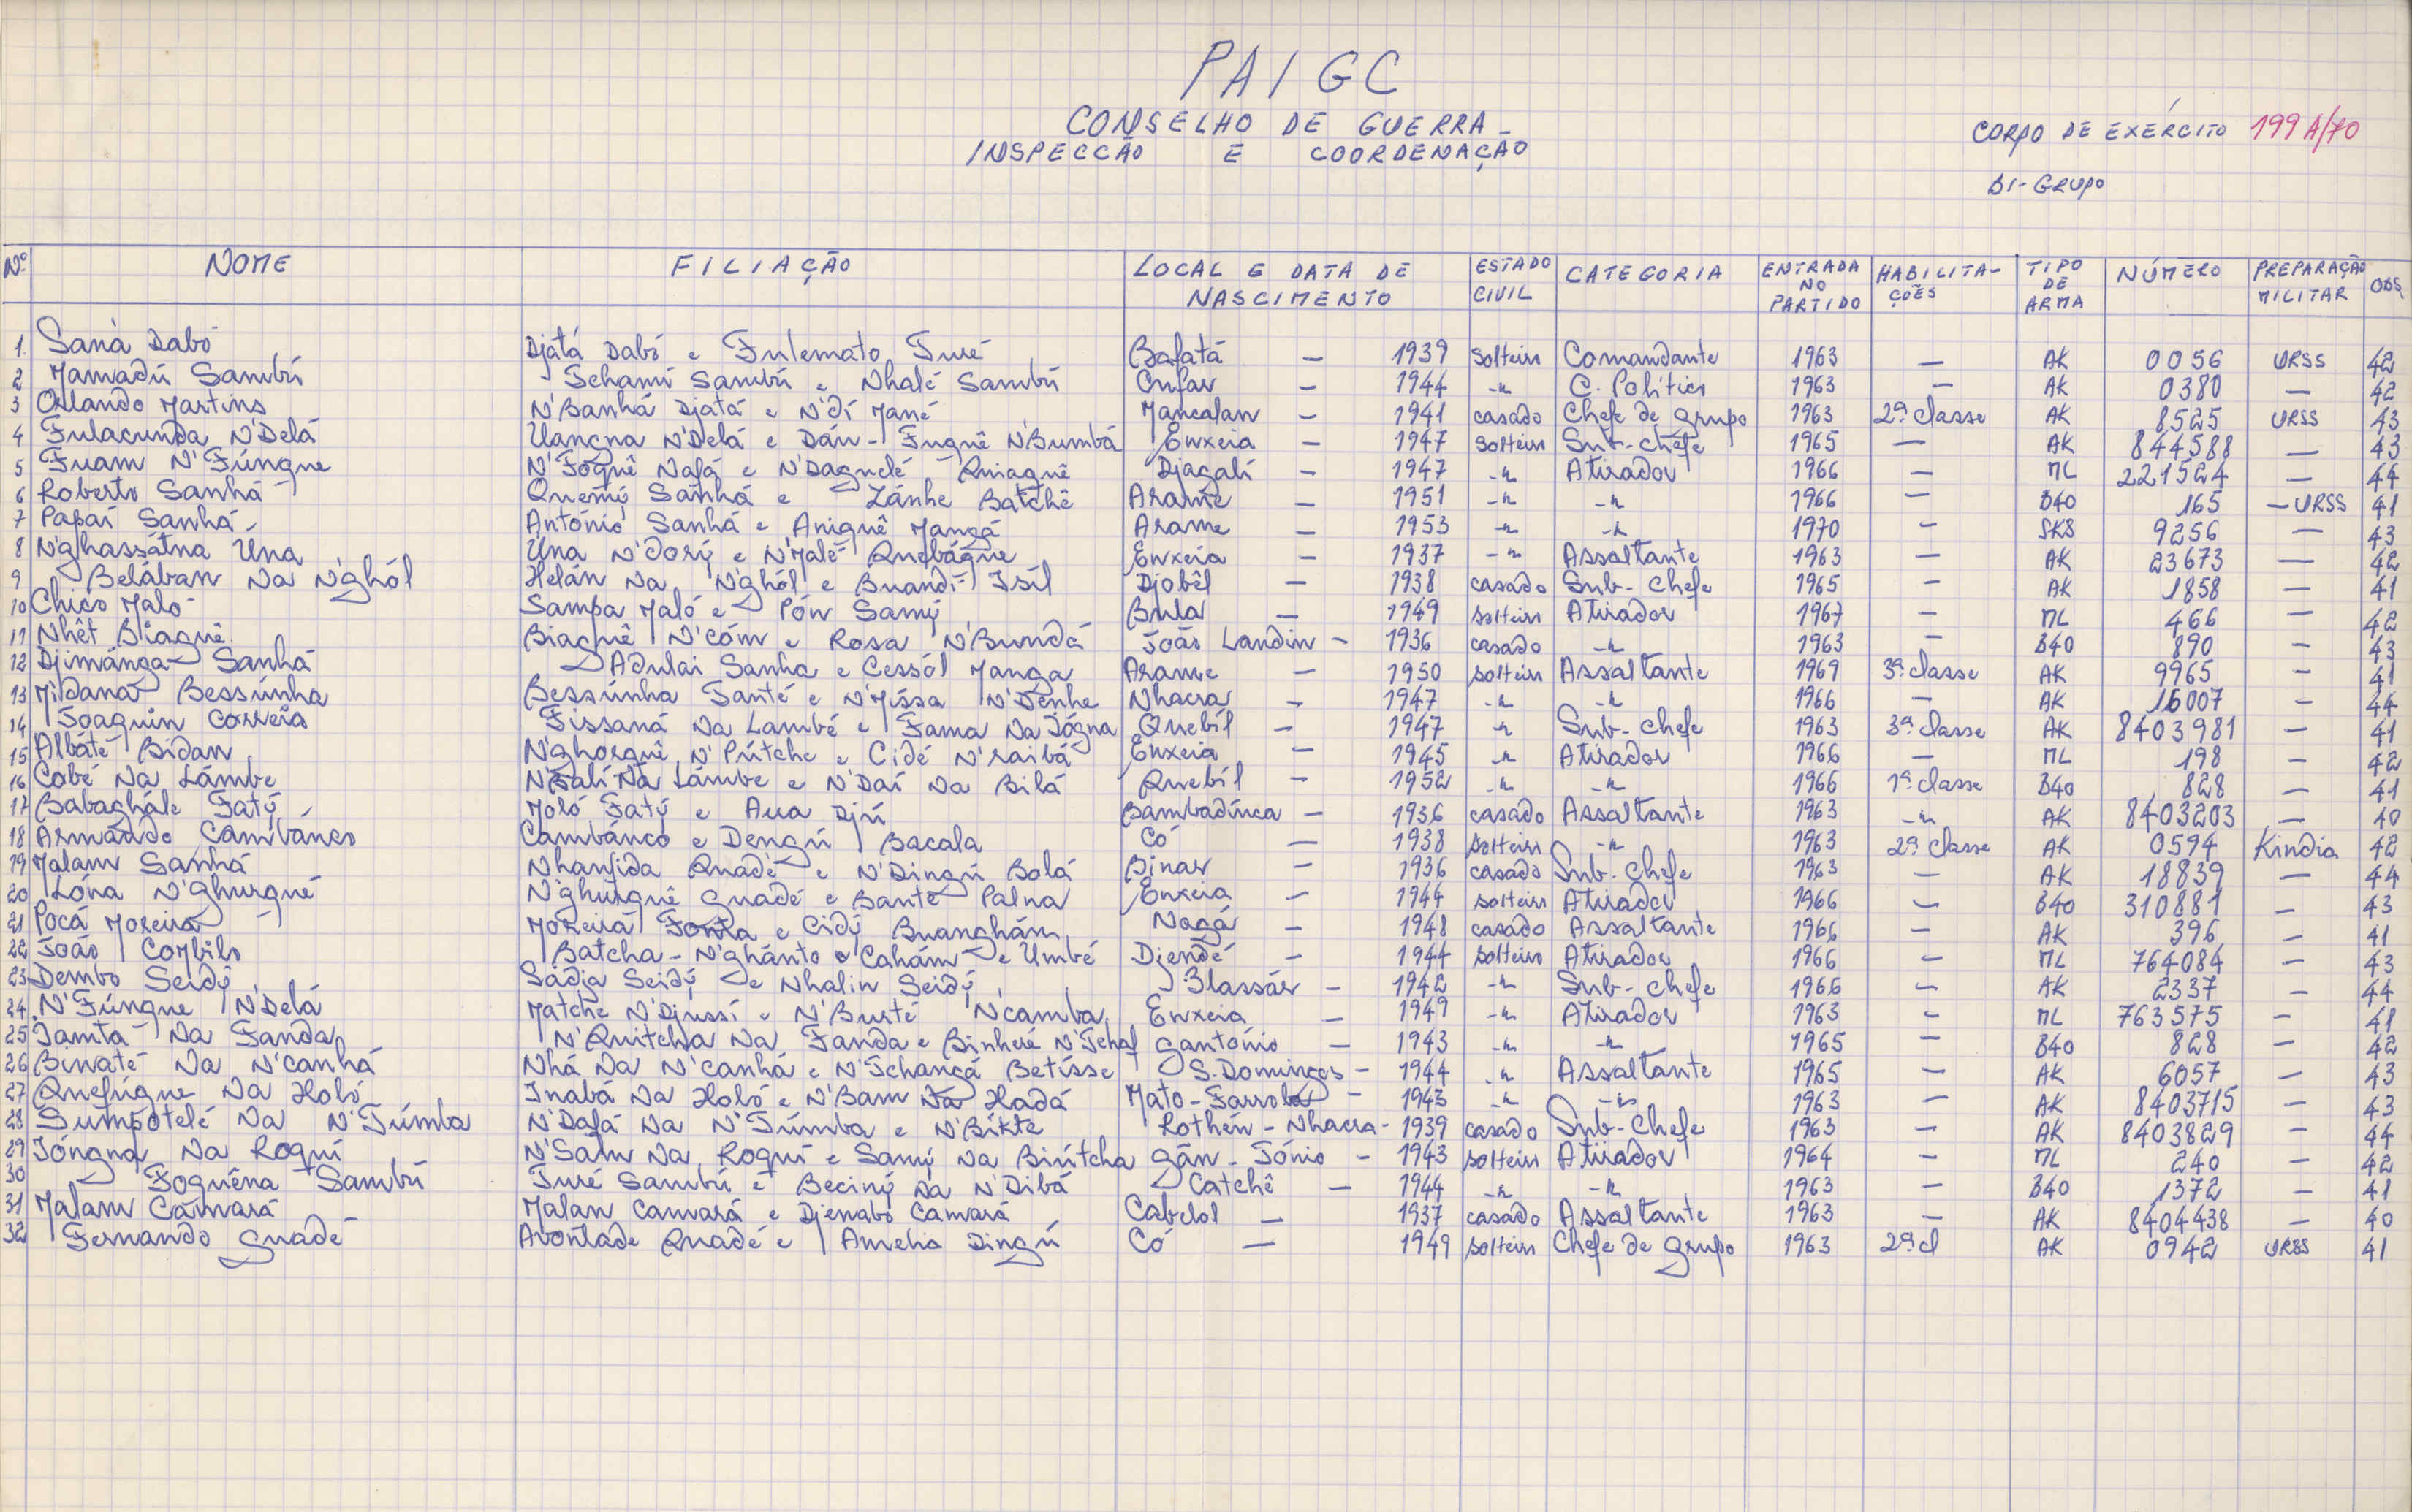 PAIGC
CONSELHO DE GUERRA
INSPECCÃO E COORDENAÇÃO
CORPO DE EXÉRCITO 199A/70
BI-GRUPO
Nº NOME FILIAÇÃO LOCAL E DATA DE NASCIMENTO ESTADO CIVIL CATEGORIA ENTRADA NO PARTIDO HABILITAÇÕES TIPO DE ARMA NÚMERO PREPARAÇÃO MILITAR OBS
1 Saná Dabó Djatá Dabó e Fulemato Turé Bafatá — 1939 solteiro Comandante 1963 — AK 0056 URSS 42
2 Mamadú Sambú Tchamí Sambú e Nhalé Sambú Cufar — 1944 -" C. Político 1963 — AK 0380 — 42
3 Orlando Martins N'Banhá Djatá e N'dí Mané Mancalan — 1941 casado Chefe de grupo 1963 2ª classe AK 8525 URSS 43
4 Fulacunda N'Delá Uangna N'Delá e Dáu-Fuguê N'Bumbá Enxeia — 1947 solteiro Sub-chefe 1965 — AK 844588 — 43
5 Fuam N'Fúngue N'Foquê Nafá e N'Dagnelé Quiaguê Djagalí — 1947 -" Atirador 1966 — ML 221524 — 44
6 Roberto Sanhá Quemý Sanhá e Zánhe Batchê Arame — 1951 -" -" 1966 — B40 165 — URSS 41
7 Papaí Sanhá António Sanhá e Aniguê Mangá Arame — 1953 -" -" 1970 — SKS 9256 — 43
8 N'ghassátna Una Una N'dorý e N'Malé Quebágne Enxeia — 1937 -" Assaltante 1963 — AK 23673 — 42
9 Belában Na N'ghól Helán Na N'ghól e Buandí Isíl Djobêl — 1938 casado Sub-Chefe 1965 — AK 1858 — 41
10 Chico Maló Sampa Maló e Pón Samý Bula — 1949 solteiro Atirador 1967 — ML 466 — 42
11 Nhêt Biaguê Biaguê N'cóm e Rosa N'Bundá João Landin — 1936 casado -" 1963 — B40 890 — 43
12 Djimánga Sanhá Adulai Sanha e Cessól Manga Arame — 1950 solteiro Assaltante 1969 3ª classe AK 9965 — 41
13 Midaná Bessúnha Bessúnha Santé e N'Missa N'Denhe Nhacra — 1947 -" -" 1966 — AK 16007 — 44
14 Joaquim Correia Fissaná Na Lambé e Fama Na Iógna Quebíl — 1947 -" Sub-chefe 1963 3ª classe AK 8403981 — 41
15 Albáté Bidan N'ghorguê N'Pútche e Cidé N'raibá Enxeia — 1945 -" Atirador 1966 — ML 198 — 42
16 Cabé Na Lámbe N'salí Na Lámbe e N'Daí Na Bilá Quebíl — 1952 -" -" 1966 1ª classe B40 828 — 41
17 Babaghále Fatý Moló Fatý e Aua Djú Bambadinca — 1936 casado Assaltante 1963 -" AK 8403203 — 40
18 Armando Cambánco Cambánco e Dengú Bacala Có — 1938 solteiro -" 1963 2ª classe AK 0594 Kindia 42
19 Malam Sanhá Nhanfida Quadé e N'Dingú Bolá Binar — 1936 casado Sub-Chefe 1963 — AK 18839 — 44
20 Lóna N'Ghurgué N'ghurguê Guadé e Bante Palna Enxeia — 1944 solteiro Atirador 1966 — B40 310881 — 43
21 Pocá Moreira Moreira e Cidý Buanghám Nagá — 1948 casado Assaltante 1966 — AK 396 — 41
22 João Batcha-N'ghánto Cahám e Umbé Djendé — 1944 solteiro Atirador 1966 — ML 764084 — 43
23 Dembo Seidý Sadja Seidý e Nhalin Seidý Blassár — 1942 -" Sub-chefe 1966 — AK 2337 — 44
24 N'Fúngue N'Delá Matche N'Djussí e N'Burté N'camba Enxeia — 1949 -" Atirador 1963 — ML 763575 — 41
25 Iamta Na Fanda N'Quitcha Na Fanda e Binheré N'Tchaf Gantónio — 1943 -" -" 1965 — B40 828 — 42
26 Binaté Na N'canhá Nhá Na N'canhá e N'Tchangá Betísse S. Domingos — 1944 -" Assaltante 1965 — AK 6057 — 43
27 Quefúgne Na Holó Inabá Na Holó e N'Bam Na Hadá Mato-Farroba — 1943 -" -" 1963 — AK 8403715 — 43
28 Sumpotelé Na N'Túmba N'Dafá Na N'Túmba e N'Bikte Rothén-Nhacra — 1939 casado Sub-Chefe 1963 — AK 8403829 — 44
29 Ióngna Na Roquí N'Sám Na Roquí e Samý Na Biútcha Gân-Tónio — 1943 solteiro Atirador 1964 — ML 240 — 42
30 Foguêna Sambú Turé Sambú e Beciný Da N'Dibá Catchê — 1944 -" -" 1963 — B40 1372 — 41
31 Malam Camará Malan Camará e Djenabó Camará Cabdol — 1937 casado Assaltante 1963 — AK 8404438 — 40
32 Fernando Guadé Avontade Quadé e Amelia Dingú Có — 1949 solteiro Chefe de grupo 1963 2ª cl AK 0942 URSS 41